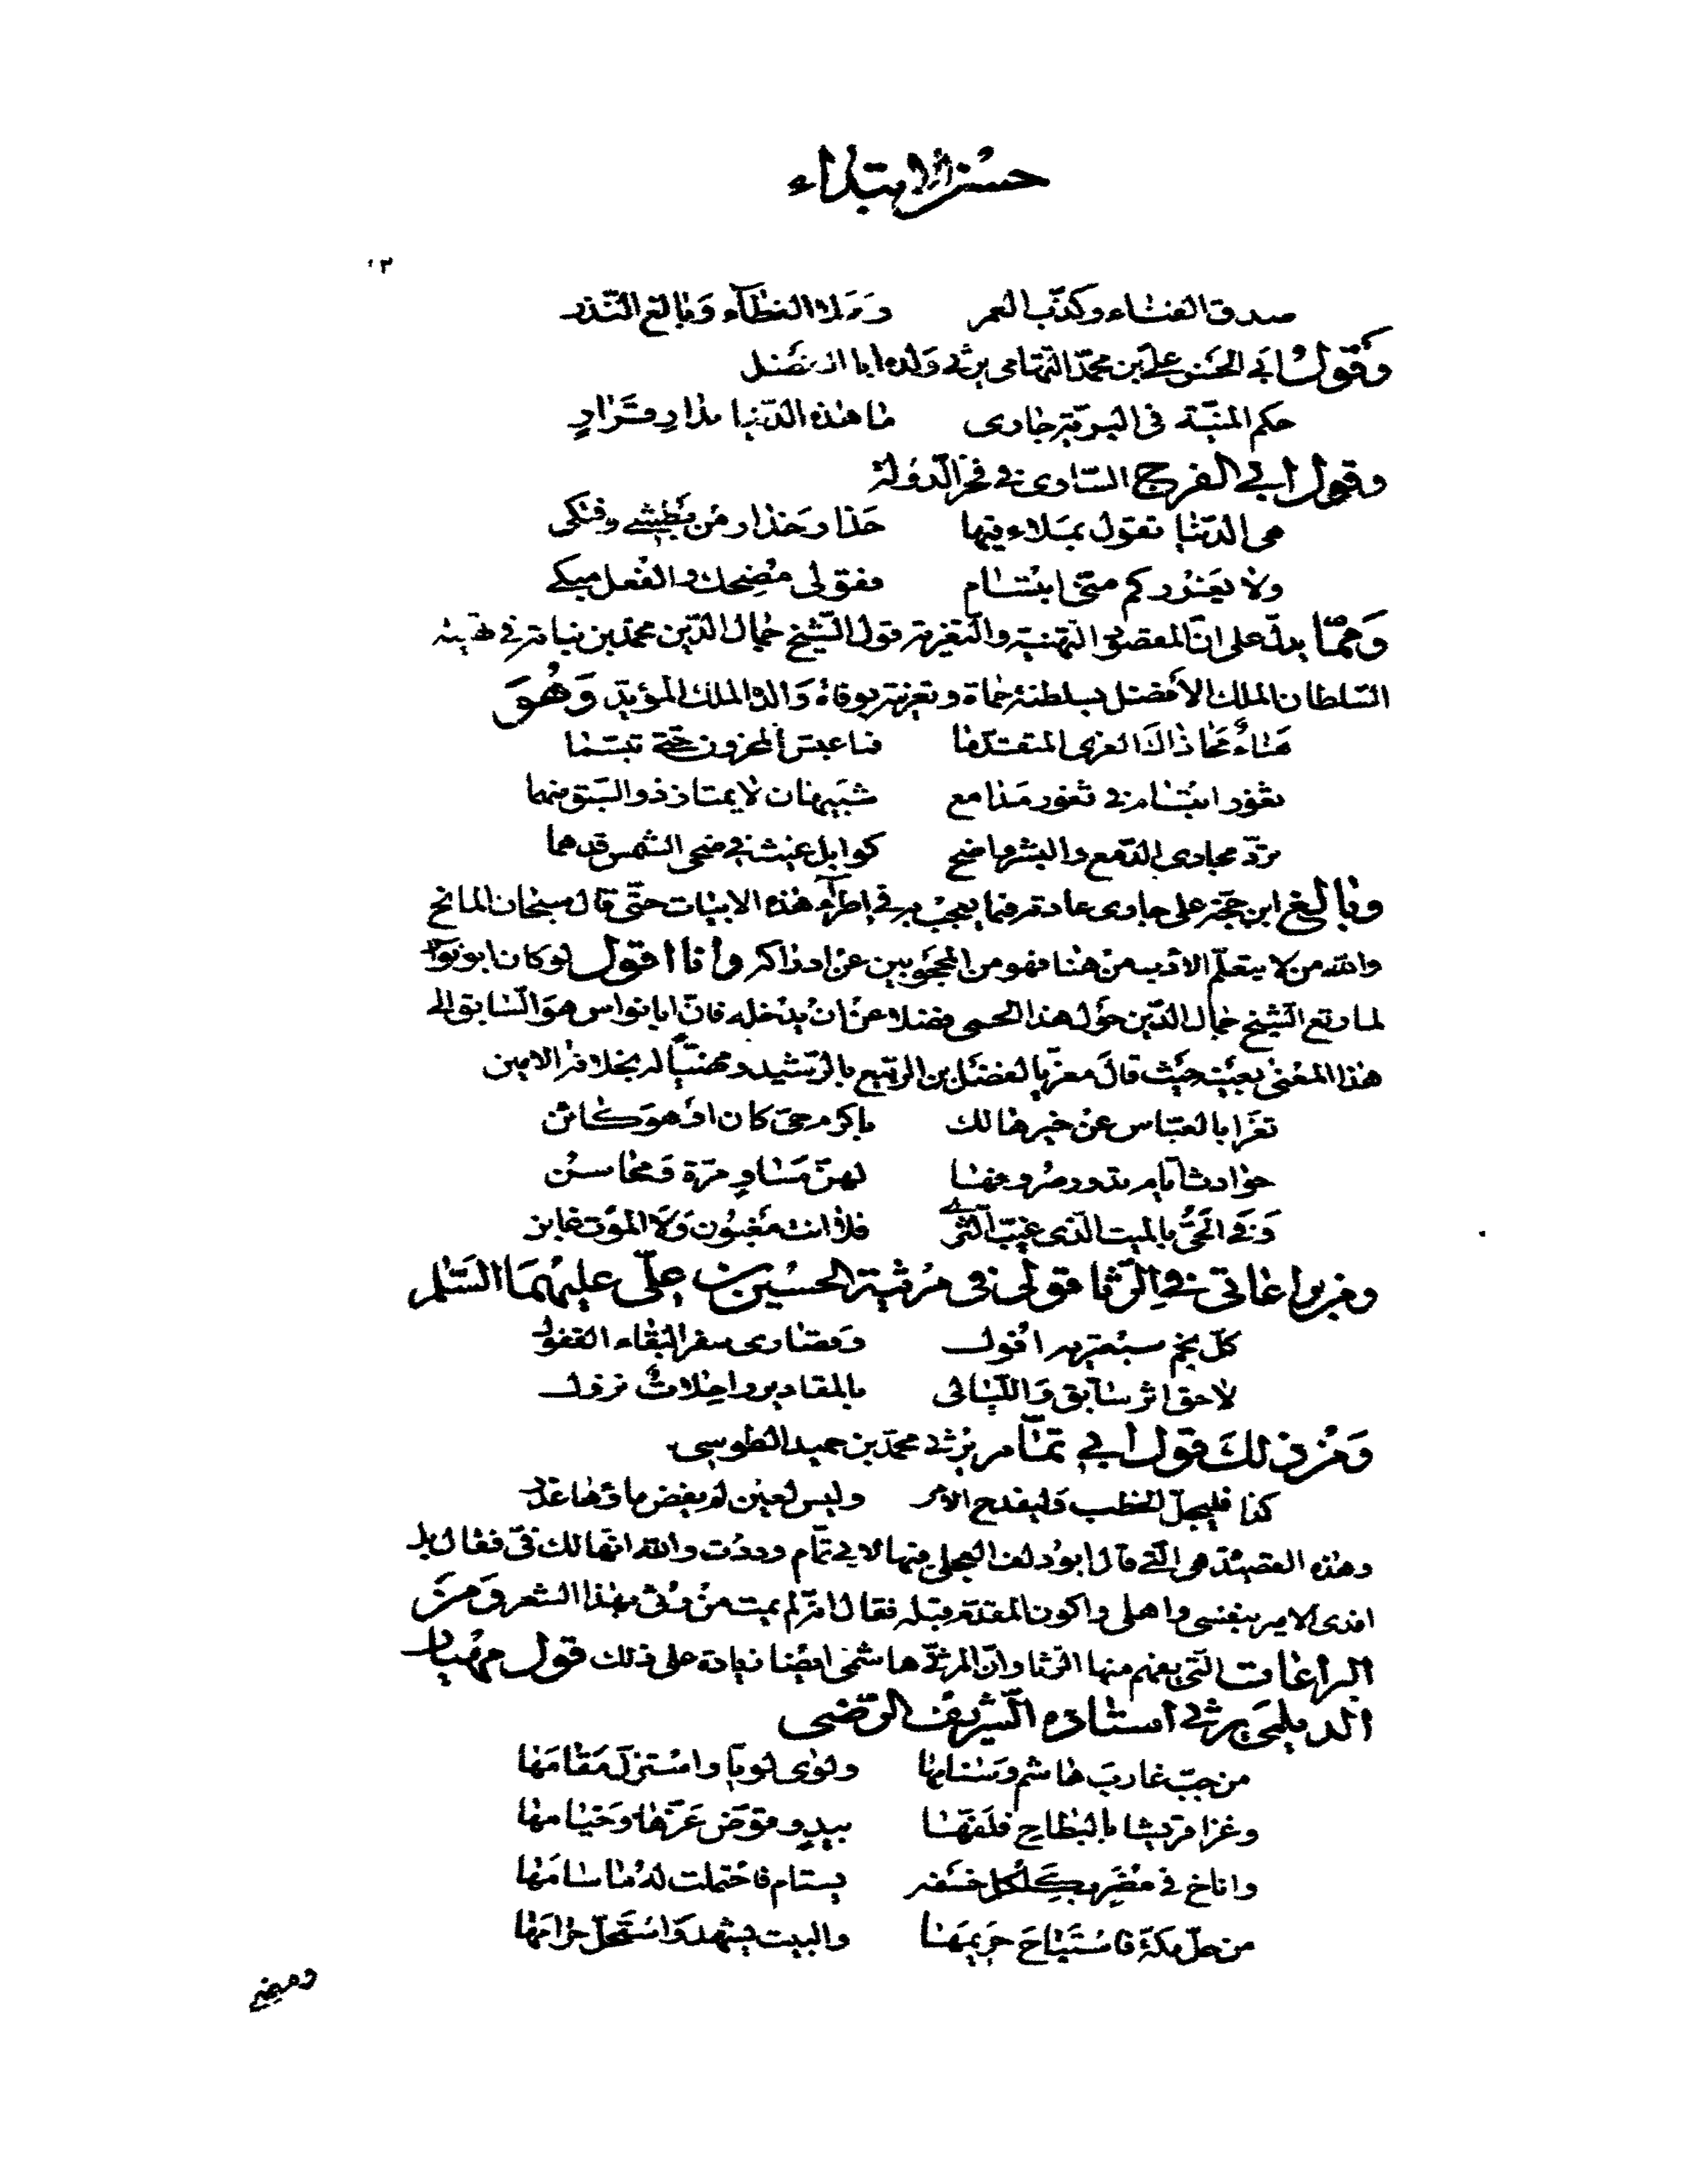 حسن الابتداء
١٣
صدق الفناء وكذب العمر وجلا العظاء وبالغ النذر
وقول ابي الحسن علي بن محمد التهامي يرثي ولده ابا الفضل
حكم المنية في البرية جاري ما هذه الدنيا بدار قرار
وقول ابي الفرج الساوي في فخر الدولة
هي الدنيا تقول بملاء فيها حذار حذار من بطشي وفتكي
ولا يغرركم مني ابتسام فقولي مضحك والفعل مبكي
ومما يدل على ان المقصود التهنية والتعزية قول الشيخ جمال الدين محمد بن نباتة في تهنية
السلطان الملك الأفضل بسلطنة حماة وتعزيته بوفاة والده الملك المؤيد وهو
هناء محا ذاك العزى المتقدما فما عبس المحزون حتى تبسما
ثغور ابتسام في ثغور مدامع شبيهان لا يمتاز ذو السبق منهما
نرد مجاري الدمع والبشر واضح كوابل غيث في ضحى الشمس قد هما
وبالغ ابن حجة على جاري عادته فيما يعجب به في اطراء هذه الابيات حتى قال سبحان المانح
والله من لا يتعلم الادب من هنا فهو من المحجوبين عن ادراكه وانا اقول لو كان ابو نواس
لما وقع الشيخ جمال الدين حول هذا الحمى فضلا عن ان يدخله فان ابا نواس هو السابق الى
هذا المعنى بعينه حيث قال معزيا لفضل بن الربيع بالرشيد ومهنيا له بخلافة الامين
تعز ابا العباس عن خير هالك باكرم حي كان او هو كائن
حوادث ايام تدور صروفها لهن مساو مرة ومحاسن
وفي الحي بالميت الذي غيب الثرى فلا انت مغبون ولا الموت غابن
ومن براعاتي في الرثا قولي في مرثية الحسين بن علي عليهما السلم
كل نجم سيعتريه افول وقصارى سفر البقاء القفول
لاحق اثر سابق والليالي بالمقادير راحلات نزول
ومن ذلك قول ابي تمام يرثي محمد بن حميد الطوسي
كذا فليجل الخطب وليفدح الامر وليس لعين لم يفض ماؤها عذر
وهذه القصيدة هي التي قال ابو دلف العجلي فيها لابي تمام وددت والله انها لك في فقال بل
افدي الامير بنفسي واهلي واكون المقدم قبله فقال انه لم يمت من رثي بهذا الشعر ومن
البراعات التي يفهم منها الرثا وان المرثى هاشمي ايضا زيادة على ذلك قول مهيار
الديلمي يرثي استاذه الشريف الرضي
من جب غارب هاشم وسنامها ولوى لويا واستزل مقامها
وغزا قريشا بالبطاح فلفها بيد وقوض عزها وخيامها
واناخ في مضر بكلكل خسفه يستام فاحتملت له ما سامها
من حل مكة فاستباح حريمها والبيت يشهد واستحل حرامها